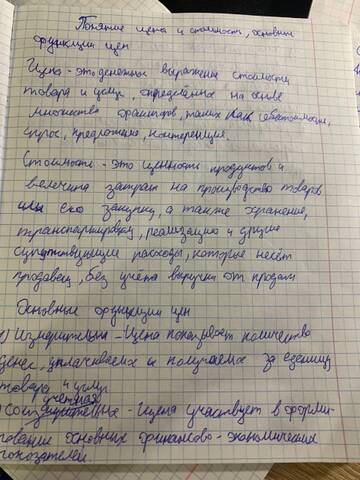 Понятие цена и стоимость, основные
функции цен
Цена - это денежное выражение стоимости
товара и услуг, определённое на основе
множества факторов, таких как себестоимость,
спрос, предложение, конкуренция.
Стоимость - это ценность продуктов и
величина затрат на производство товаров
или его закупку, а также хранение,
транспортировку, реализацию и другие
сопутствующие расходы, которые несёт
продавец, без учёта выручки от продаж
Основные функции цен
1) Измерительная - Цена показывает количество
денег, уплачиваемых и получаемых за единицу
товара и услуг
учетная
- Цена участвует в форми-
ровании основных финансово-экономических
показателей.